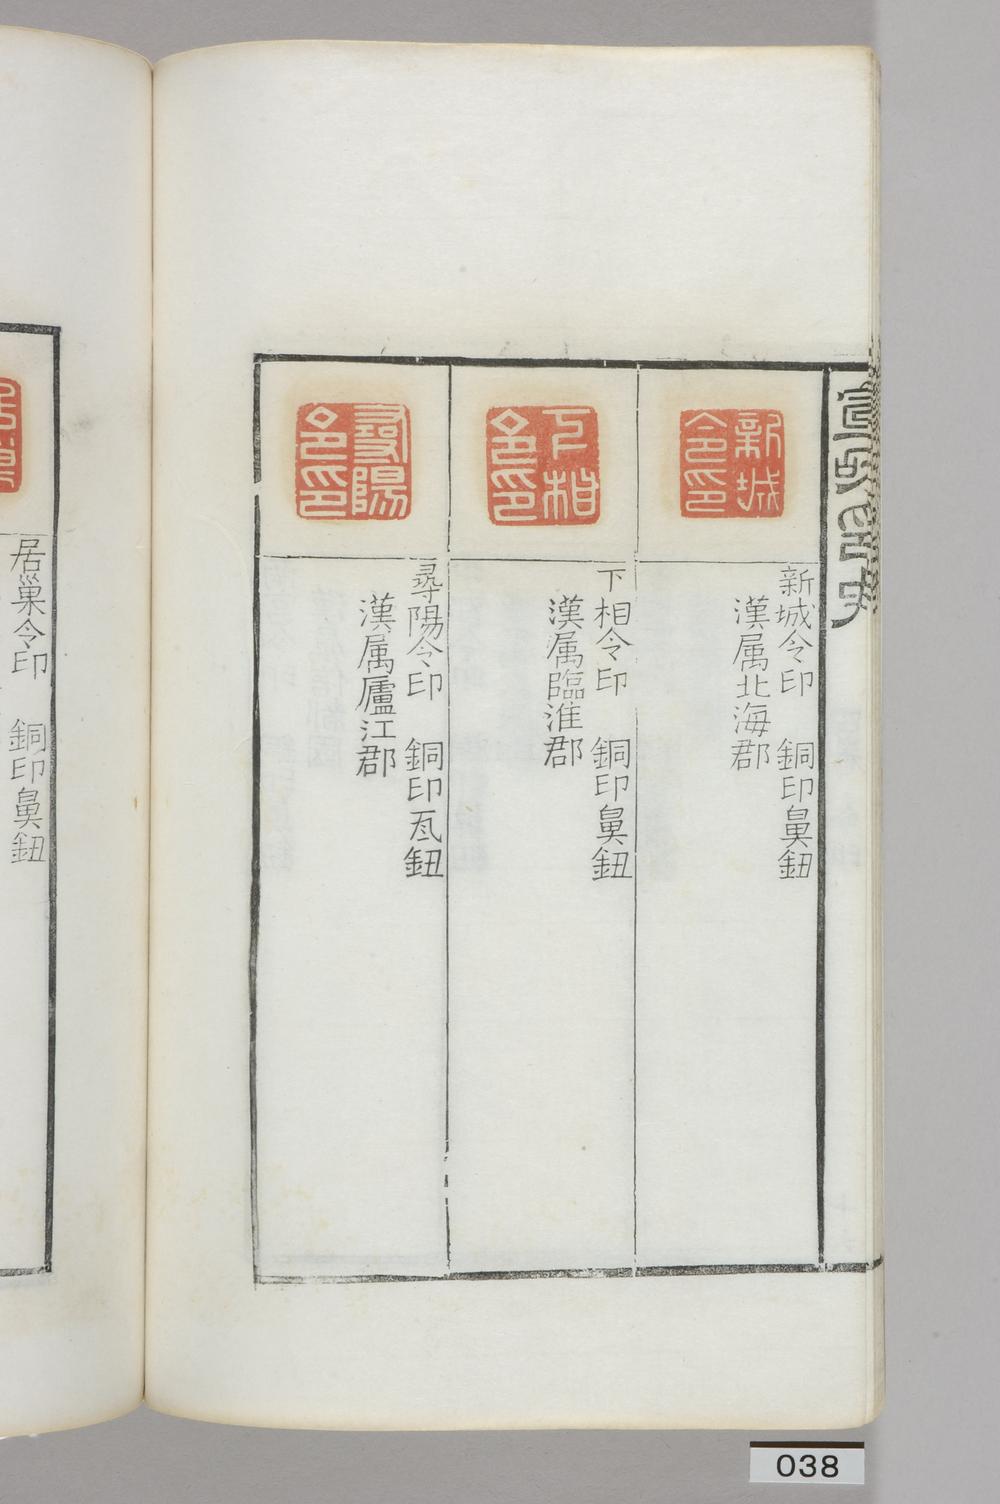 新城令印
新城令印 銅印鼻鈕
漢属北海郡
下相令印
下相令印 銅印鼻鈕
漢属臨淮郡
尋陽令印
尋陽令印 銅印瓦鈕
漢属廬江郡
居巢令印 銅印鼻鈕
038